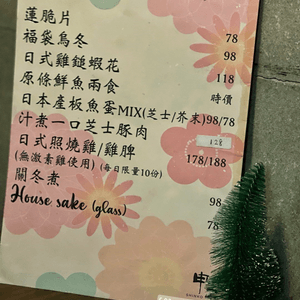 蓮脆片
福袋烏冬 78
日式雞鎚蝦花 98
原條鮮魚兩食 118
日本產板魚蛋MIX(芝士/芥末) 時價
汁煮一口芝士豚肉 98/78
日式照燒雞/雞髀 128
(無激素雞使用) (每日限量10份) 178/188
關冬煮
House sake (glass) 98
78
申